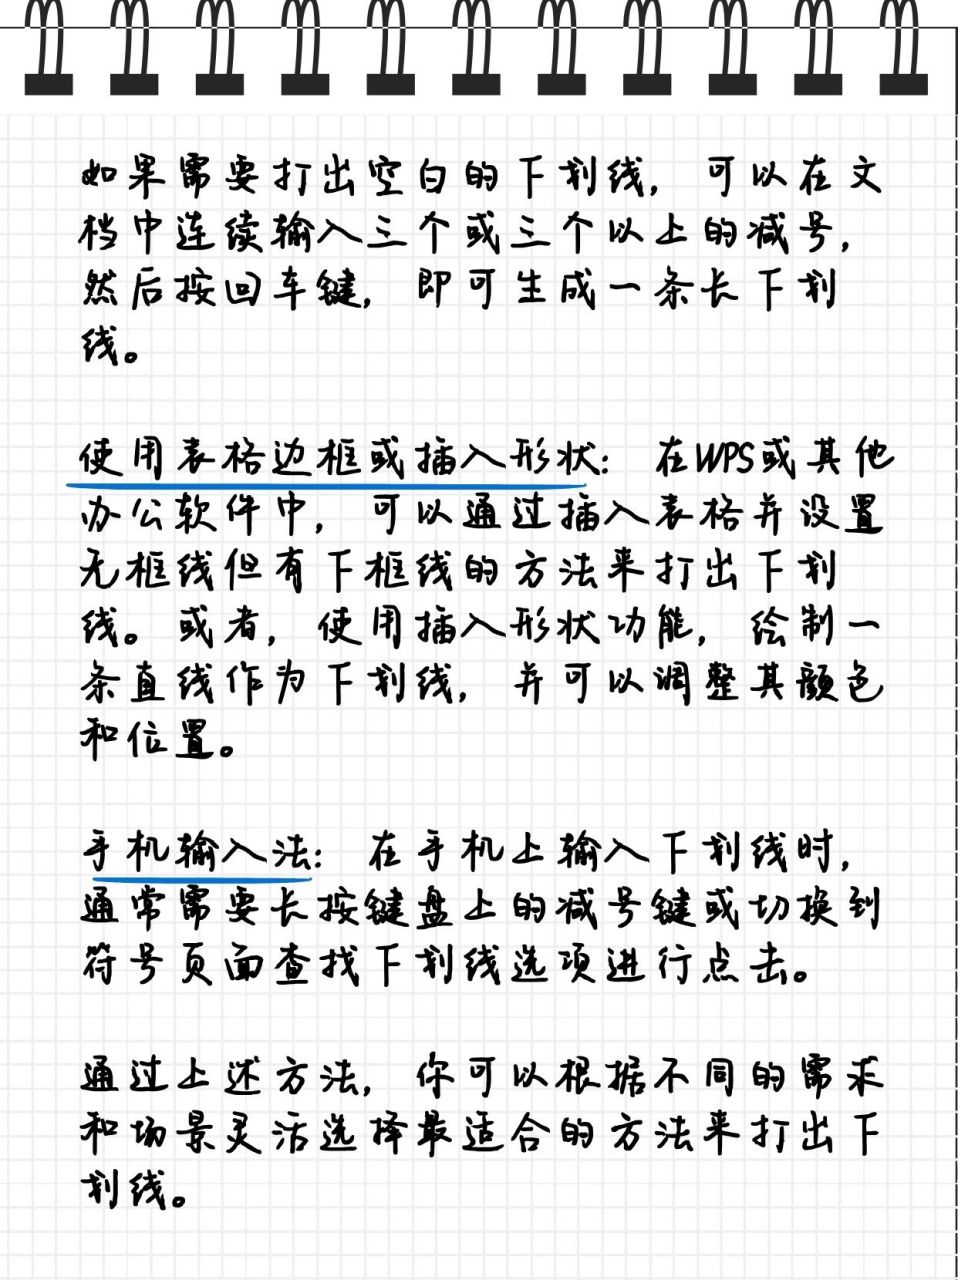 如果需要打出空白的下划线，可以在文
档中连续输入三个或三个以上的减号，
然后按回车键，即可生成一条长下划
线。
使用表格边框或插入形状：在WPS或其他
办公软件中，可以通过插入表格并设置
无框线但有下框线的方法来打出下划
线。或者，使用插入形状功能，绘制一
条直线作为下划线，并可以调整其颜色
和位置。
手机输入法：在手机上输入下划线时，
通常需要长按键盘上的减号键或切换到
符号页面查找下划线选项进行点击。
通过上述方法，你可以根据不同的需求
和场景灵活选择最适合的方法来打出下
划线。